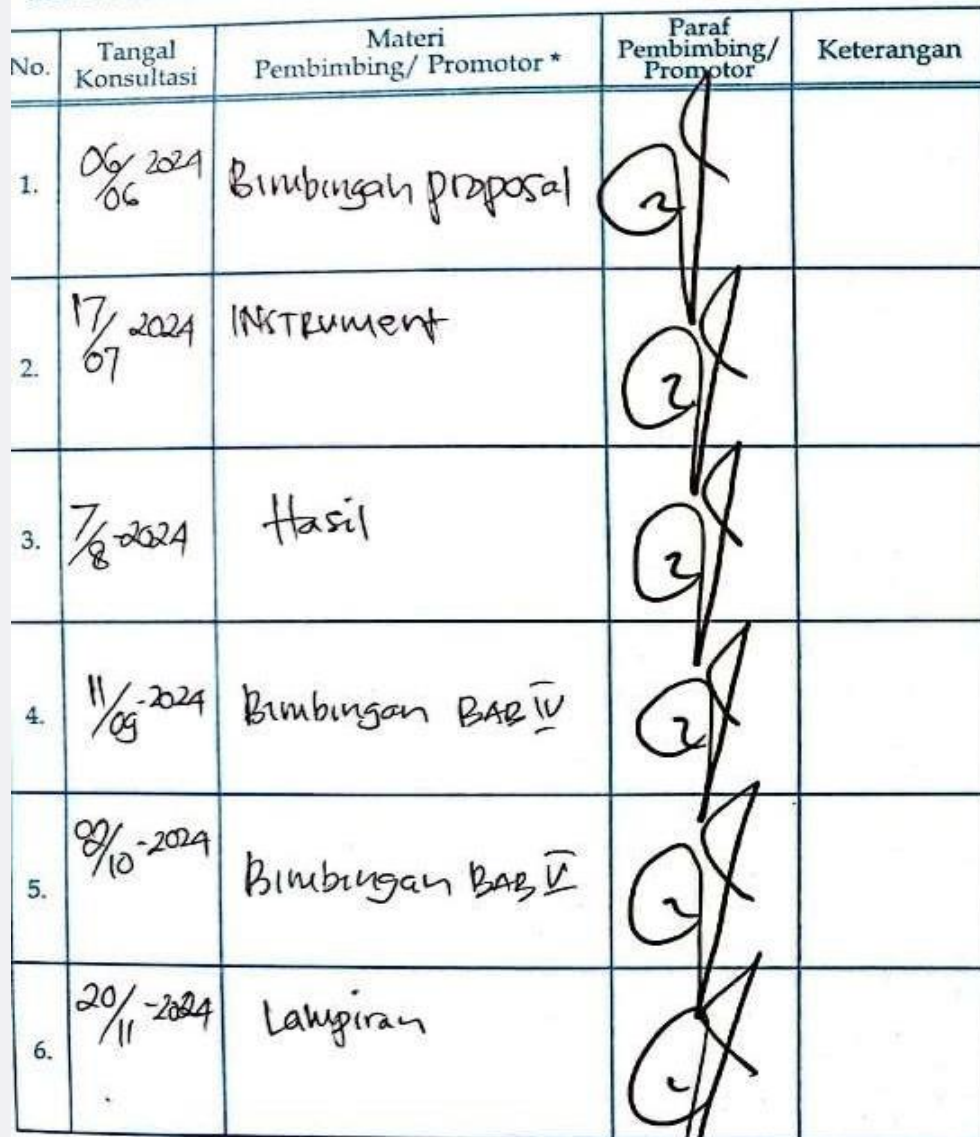 No.
Tangal
Konsultasi
Materi
Pembimbing/ Promotor *
Paraf
Pembimbing/
Promotor
Keterangan
1.
06/06 2024
Bimbingan proposal
2.
17/07 2024
INSTRument
3.
7/8-2024
Hasil
4.
11/09-2024
Bimbingan BAB IV
5.
/10-2024
Bimbingan BAB V
6.
20/11-2024
Lampiran